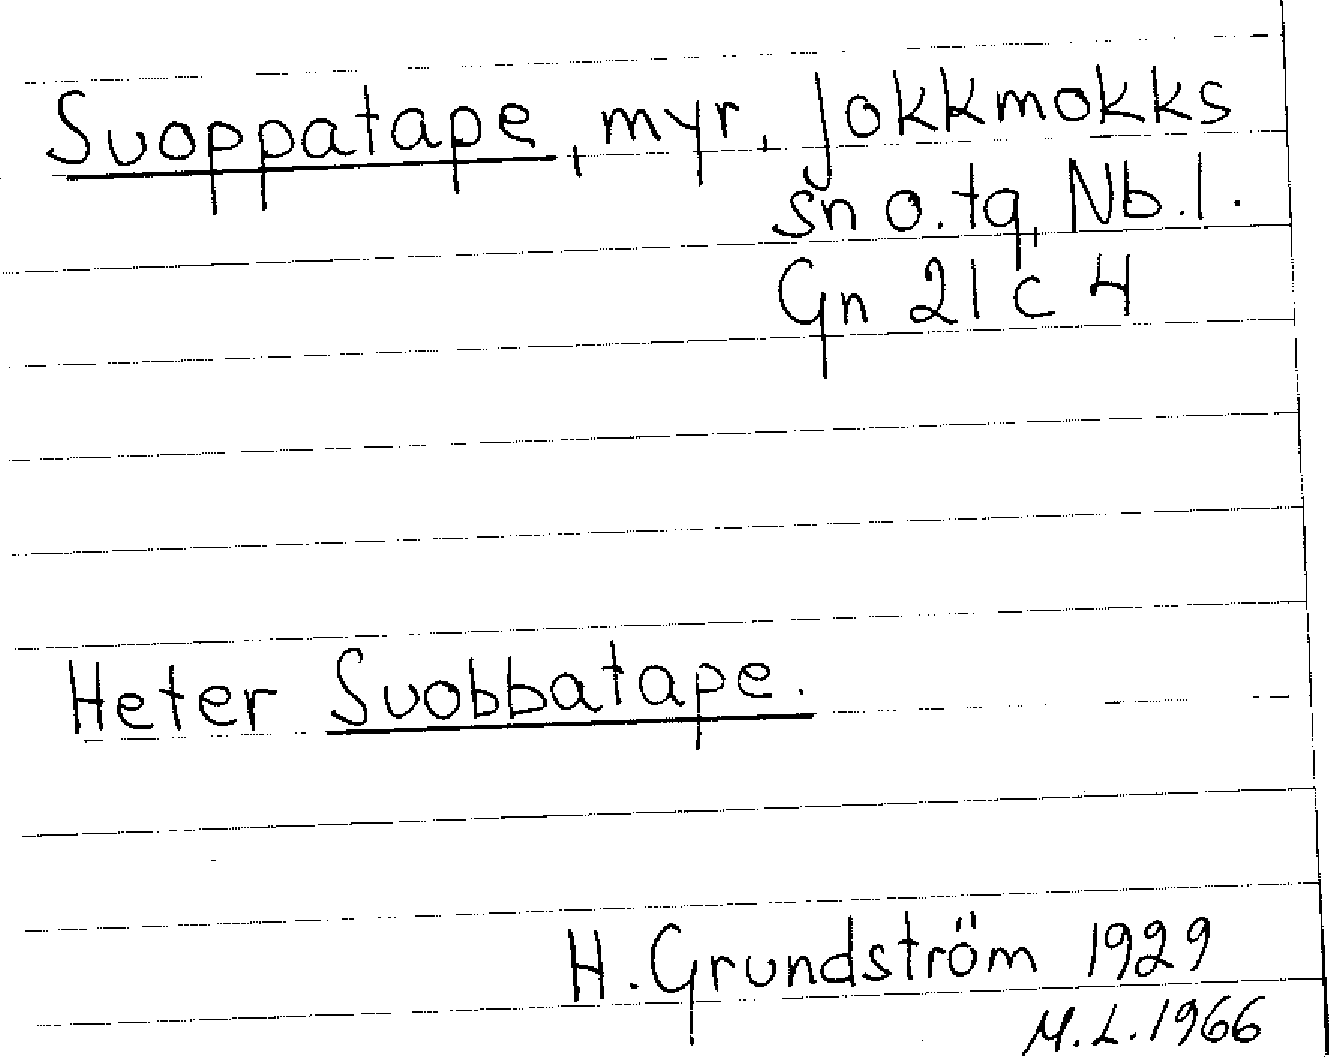 Suoppatape, myr, Jokkmokks
sn o. tg, Nb. l.
Gn 21 c 4
Heter Suobbatape.
H. Grundström 1929
M. L. 1966